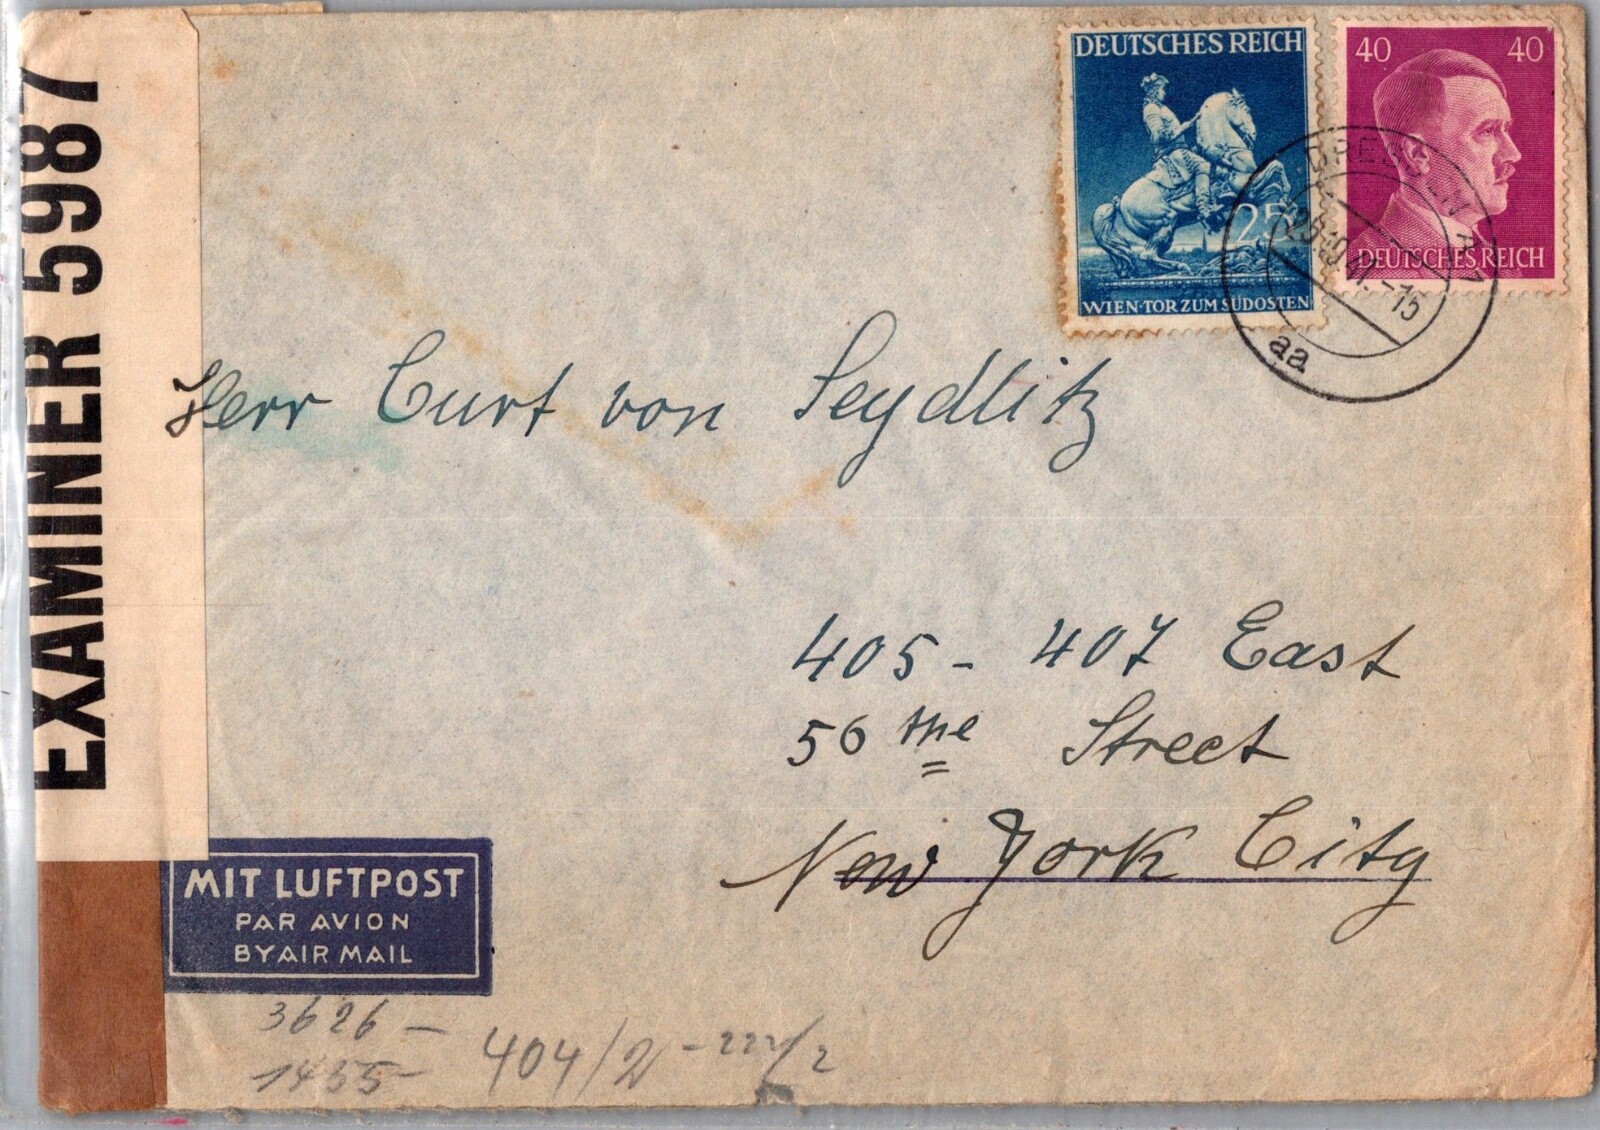 EXAMINER 5987
DEUTSCHES REICH
25
WIEN·TOR ZUM SÜDOSTEN
40 40
DEUTSCHES REICH
DRESDEN A
25.10.41.-15
aa
Herr Curt von Seydlitz
405 - 407 East
56 the Street
New York City
MIT LUFTPOST
PAR AVION
BY AIR MAIL
3626 -
1455 -
404/2